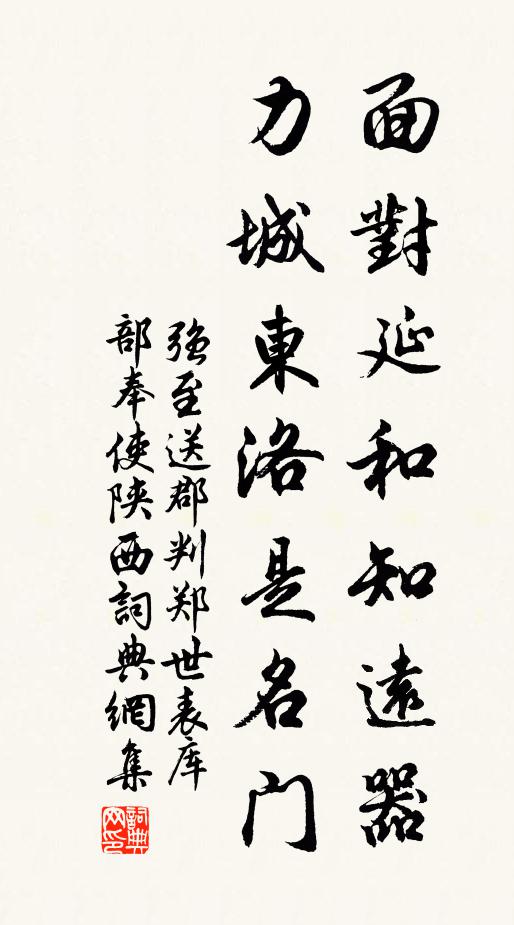 面對延和知遠器
力城東洛是名門
強至送郡判郑世表库
部奉使陕西詞典網集
詞典网印